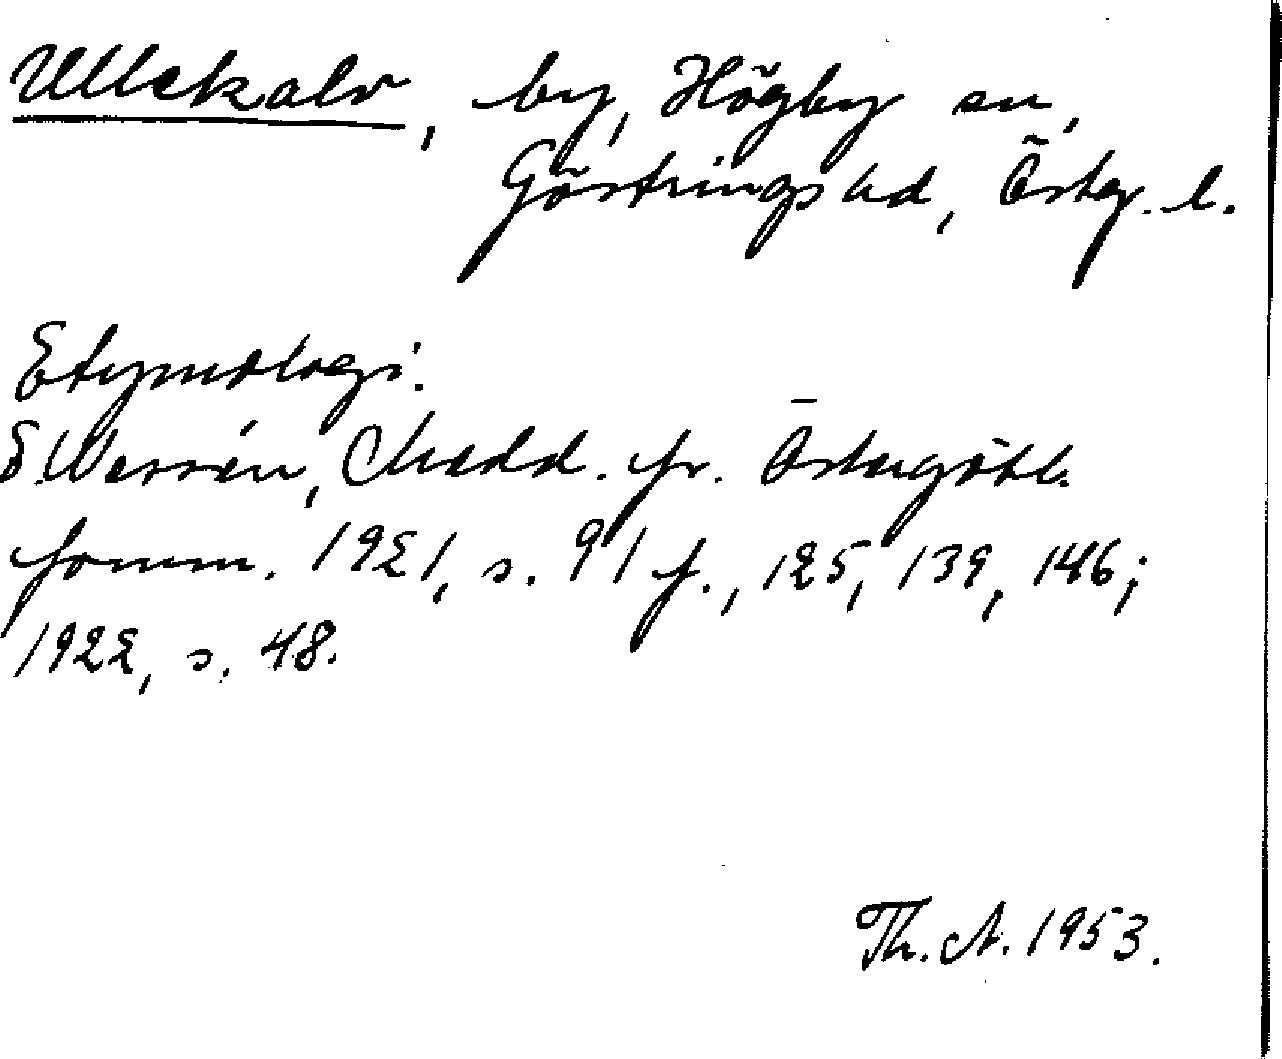 Ullekalv, by, Högby sn,
Göstrings hd, Österg. l.
Etymologi.
E. Wessén, Medd. fr. Östergötl.
fornm. 1921, s. 91 f., 125, 139, 146;
1922, s. 48.
Th. A. 1953.